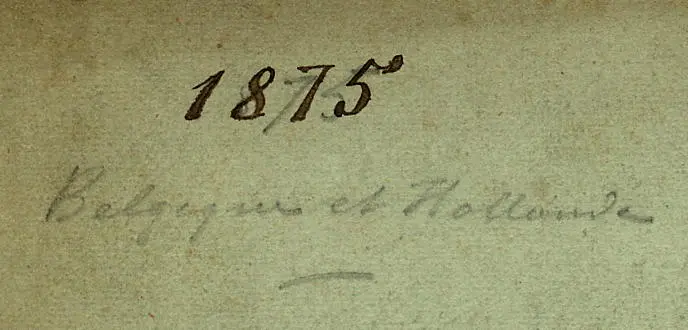 1875
Belgique et Hollande